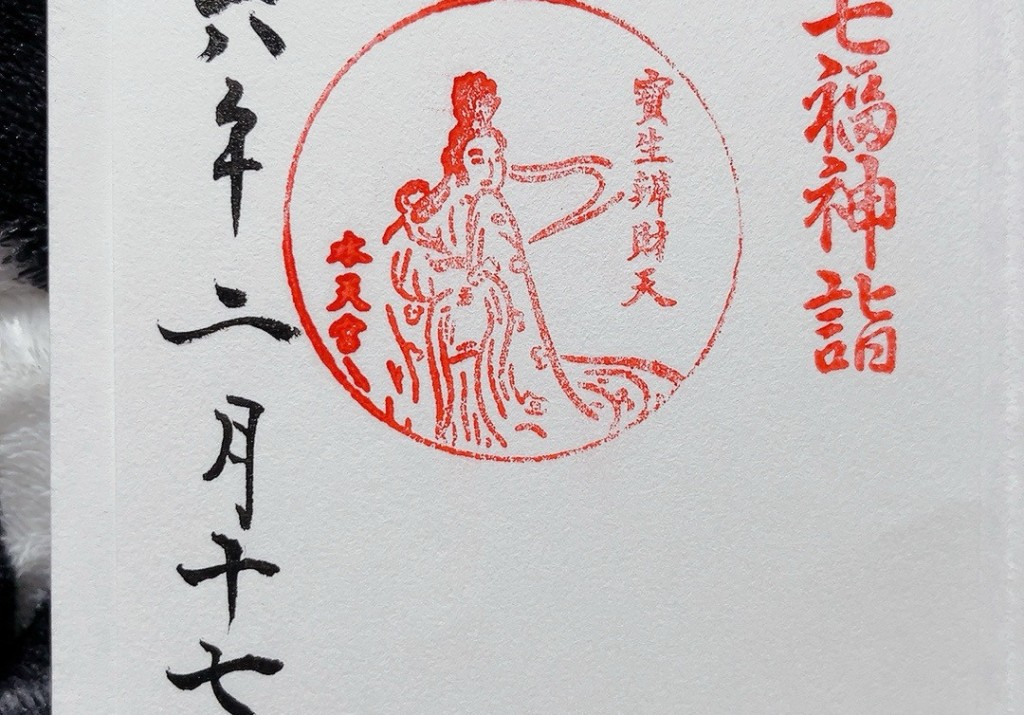 七福神詣
寶生辨財天
水天宮
六年二月十七